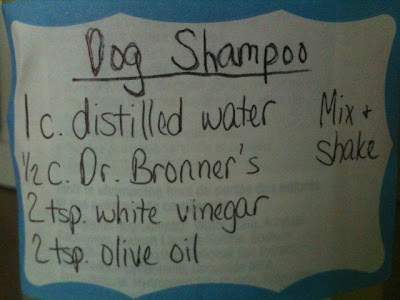 Dog Shampoo
1 c. distilled water
½ c. Dr. Bronner's
2 tsp. white vinegar
2 tsp. olive oil
Mix +
shake